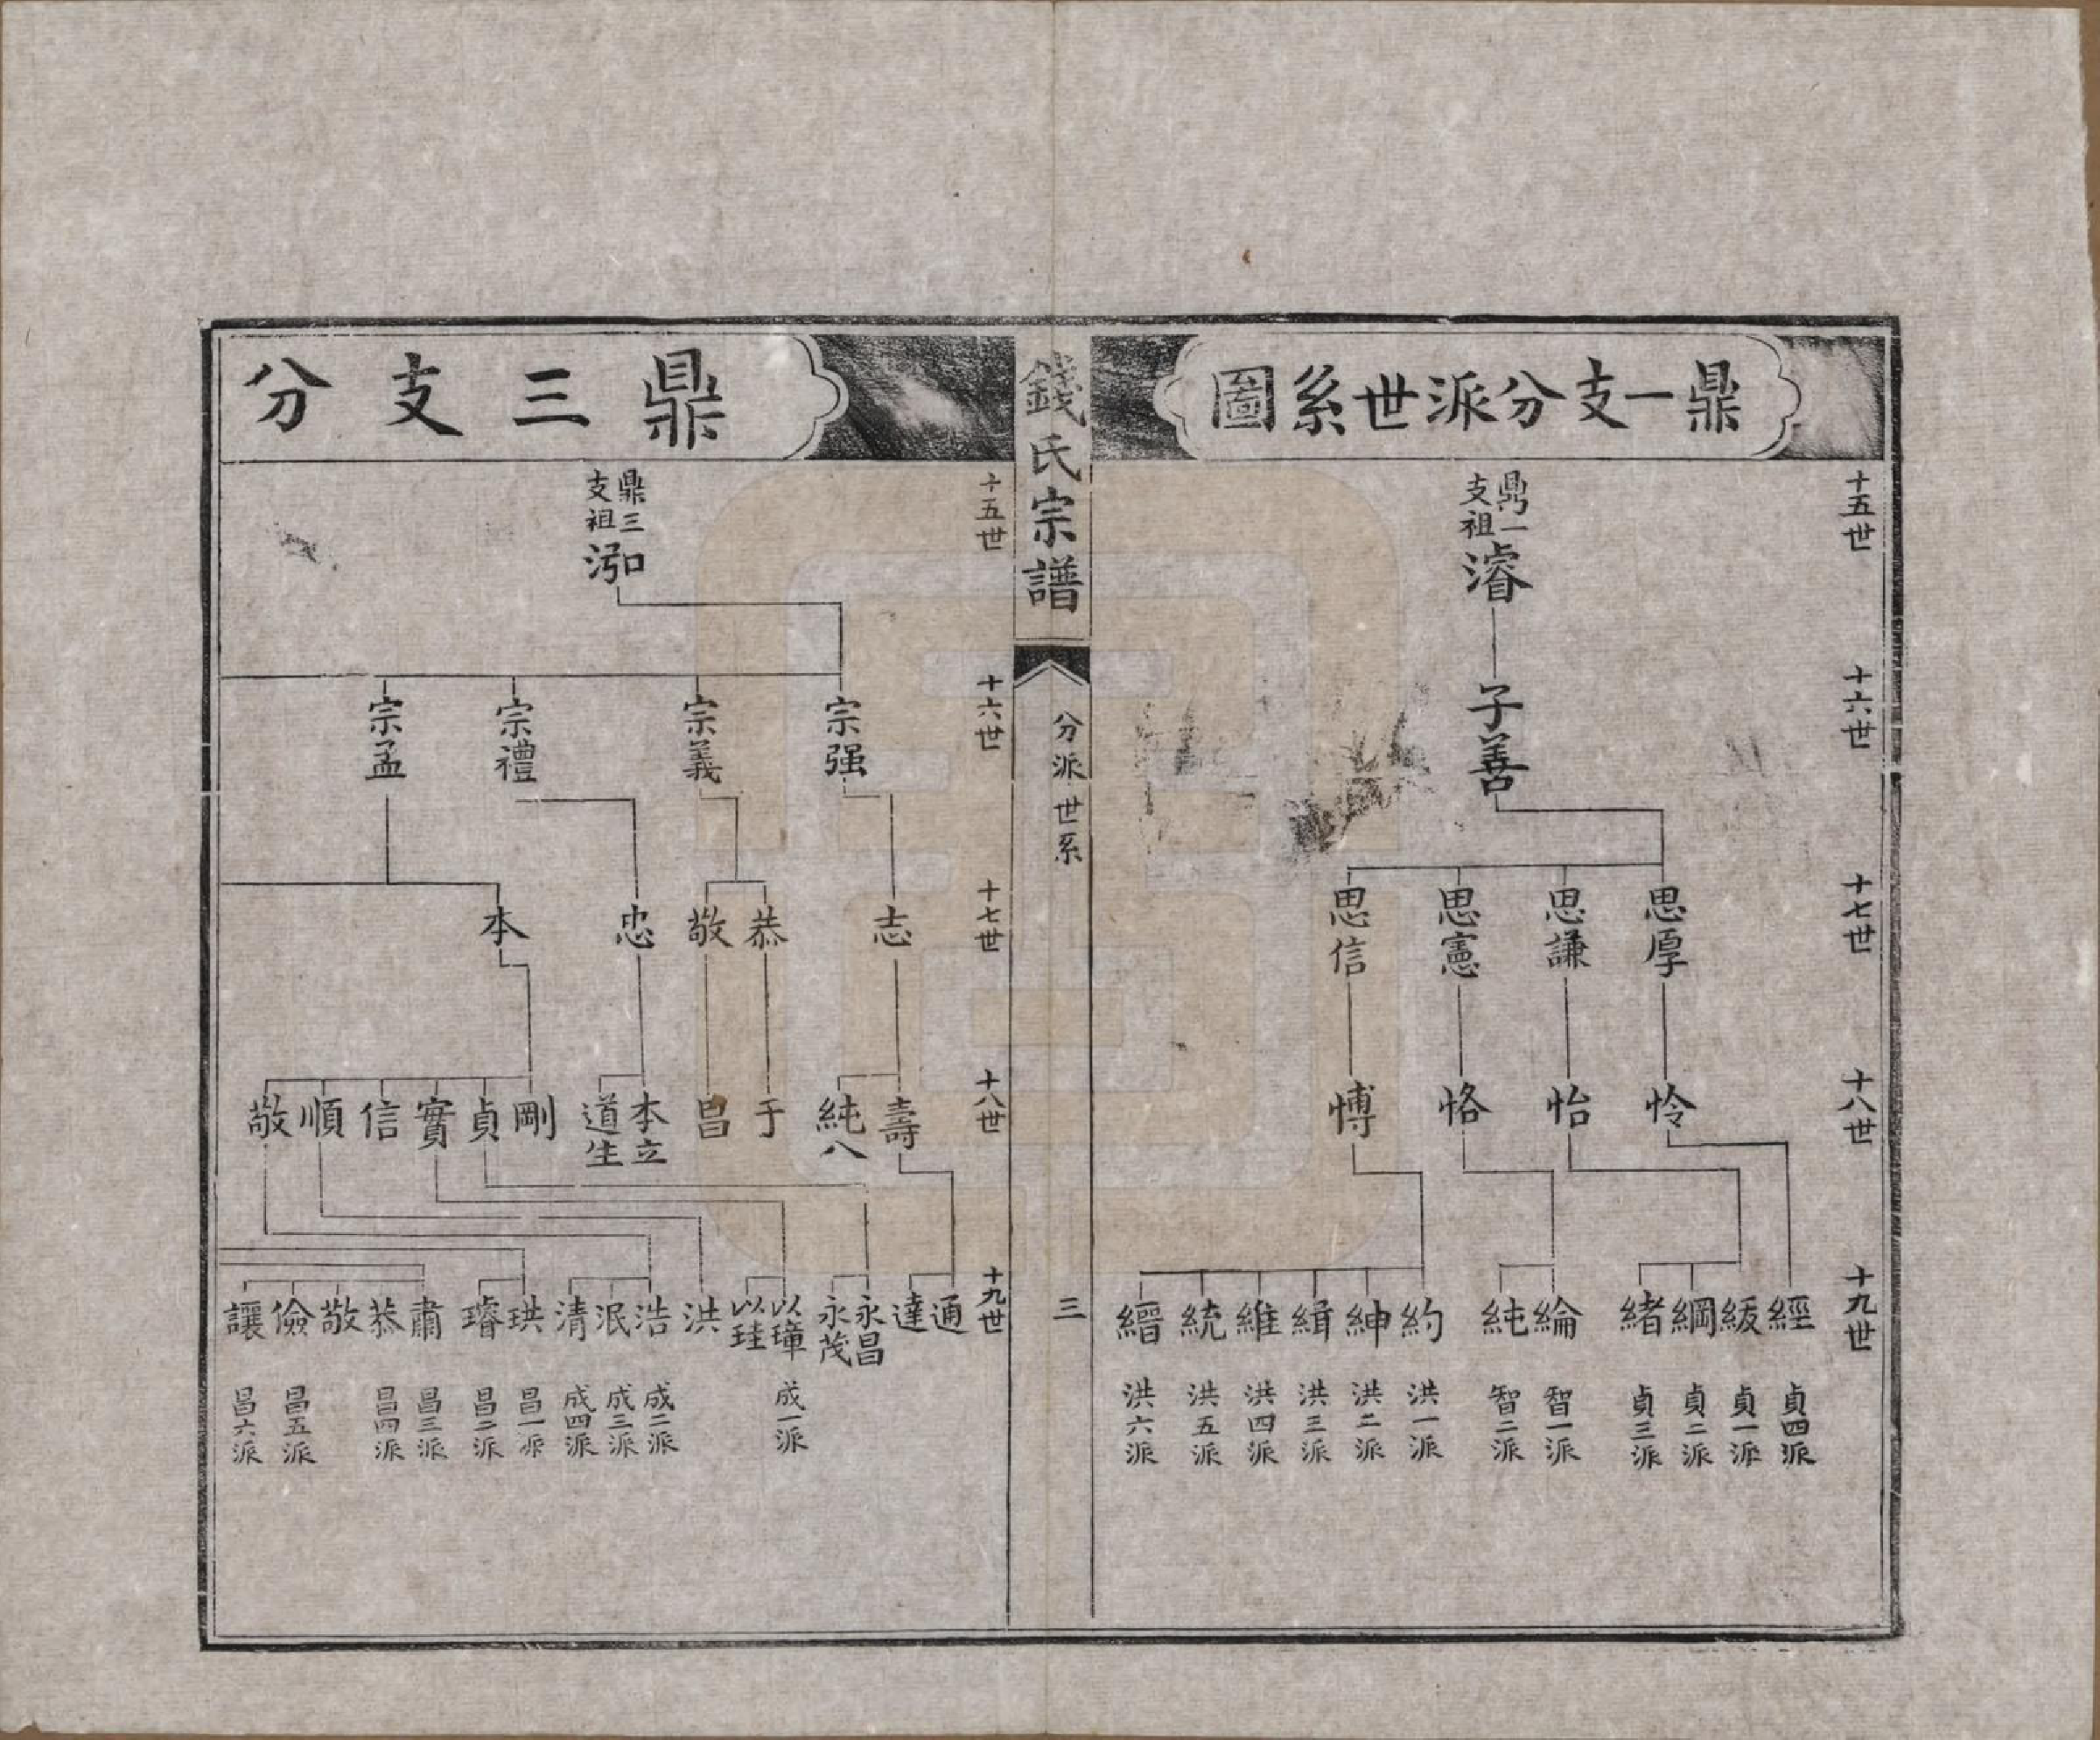 鼎一支分派世系圖
十五世
鼎一支祖
濬
十六世
子善
十七世
思厚
思謙
思憲
思信
十八世
怜
怡
恪
愽
十九世
經
緩
綱
緒
綸
純
約
紳
緝
維
統
縉
貞四派
貞一派
貞二派
貞三派
智一派
智二派
洪一派
洪二派
洪三派
洪四派
洪五派
洪六派
錢氏宗譜
分派世系
三
鼎三支分
十五世
鼎三支祖
十六世
宗强
宗義
宗禮
宗孟
十七世
志
恭
敬
忠
本
十八世
壽
純八
于
昌
本立
道生
剛
貞
實
信
順
敬
十九世
通
達
永昌
永茂
以璋
以珪
洪
浩
泯
清
珙
璿
肅
恭
敬
儉
讓
成一派
成二派
成三派
成四派
昌一派
昌二派
昌三派
昌四派
昌五派
昌六派